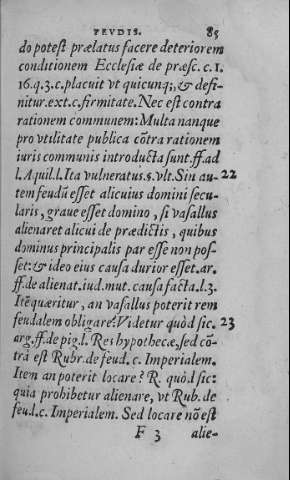 FEVDIS. 85
do potest prælatus facere deteriorem
conditionem Ecclesiæ de præsc. c. 1.
16. q. 3. c. placuit vt quicunq;, & defi-
nitur. ext. c. firmitate. Nec est contra
rationem communem: Multa nanque
pro vtilitate publica cõtra rationem
iuris communis introducta sunt. ff. ad
l. Aquil. l. Ita vulneratus. §. vlt. Sin au- 22
tem feudũ esset alicuius domini secu-
laris, graue esset domino, si vasallus
alienaret alicui de prædictis, quibus
dominus principalis par esse non pos-
set: & ideo eius causa durior esset. ar.
ff. de alienat. iud. mut. causa facta. l. 3.
Itẽ quæritur, an vasallus poterit rem
feudalem obligare? Videtur quòd sic. 23
arg. ff. de pig. l. Res hypothecæ, sed cõ-
trà est Rubr. de feud. c. Imperialem.
Item an poterit locare? R. quòd sic:
quia prohibetur alienare, vt Rub. de
feud. c. Imperialem. Sed locare nõ est
F 3 alie-